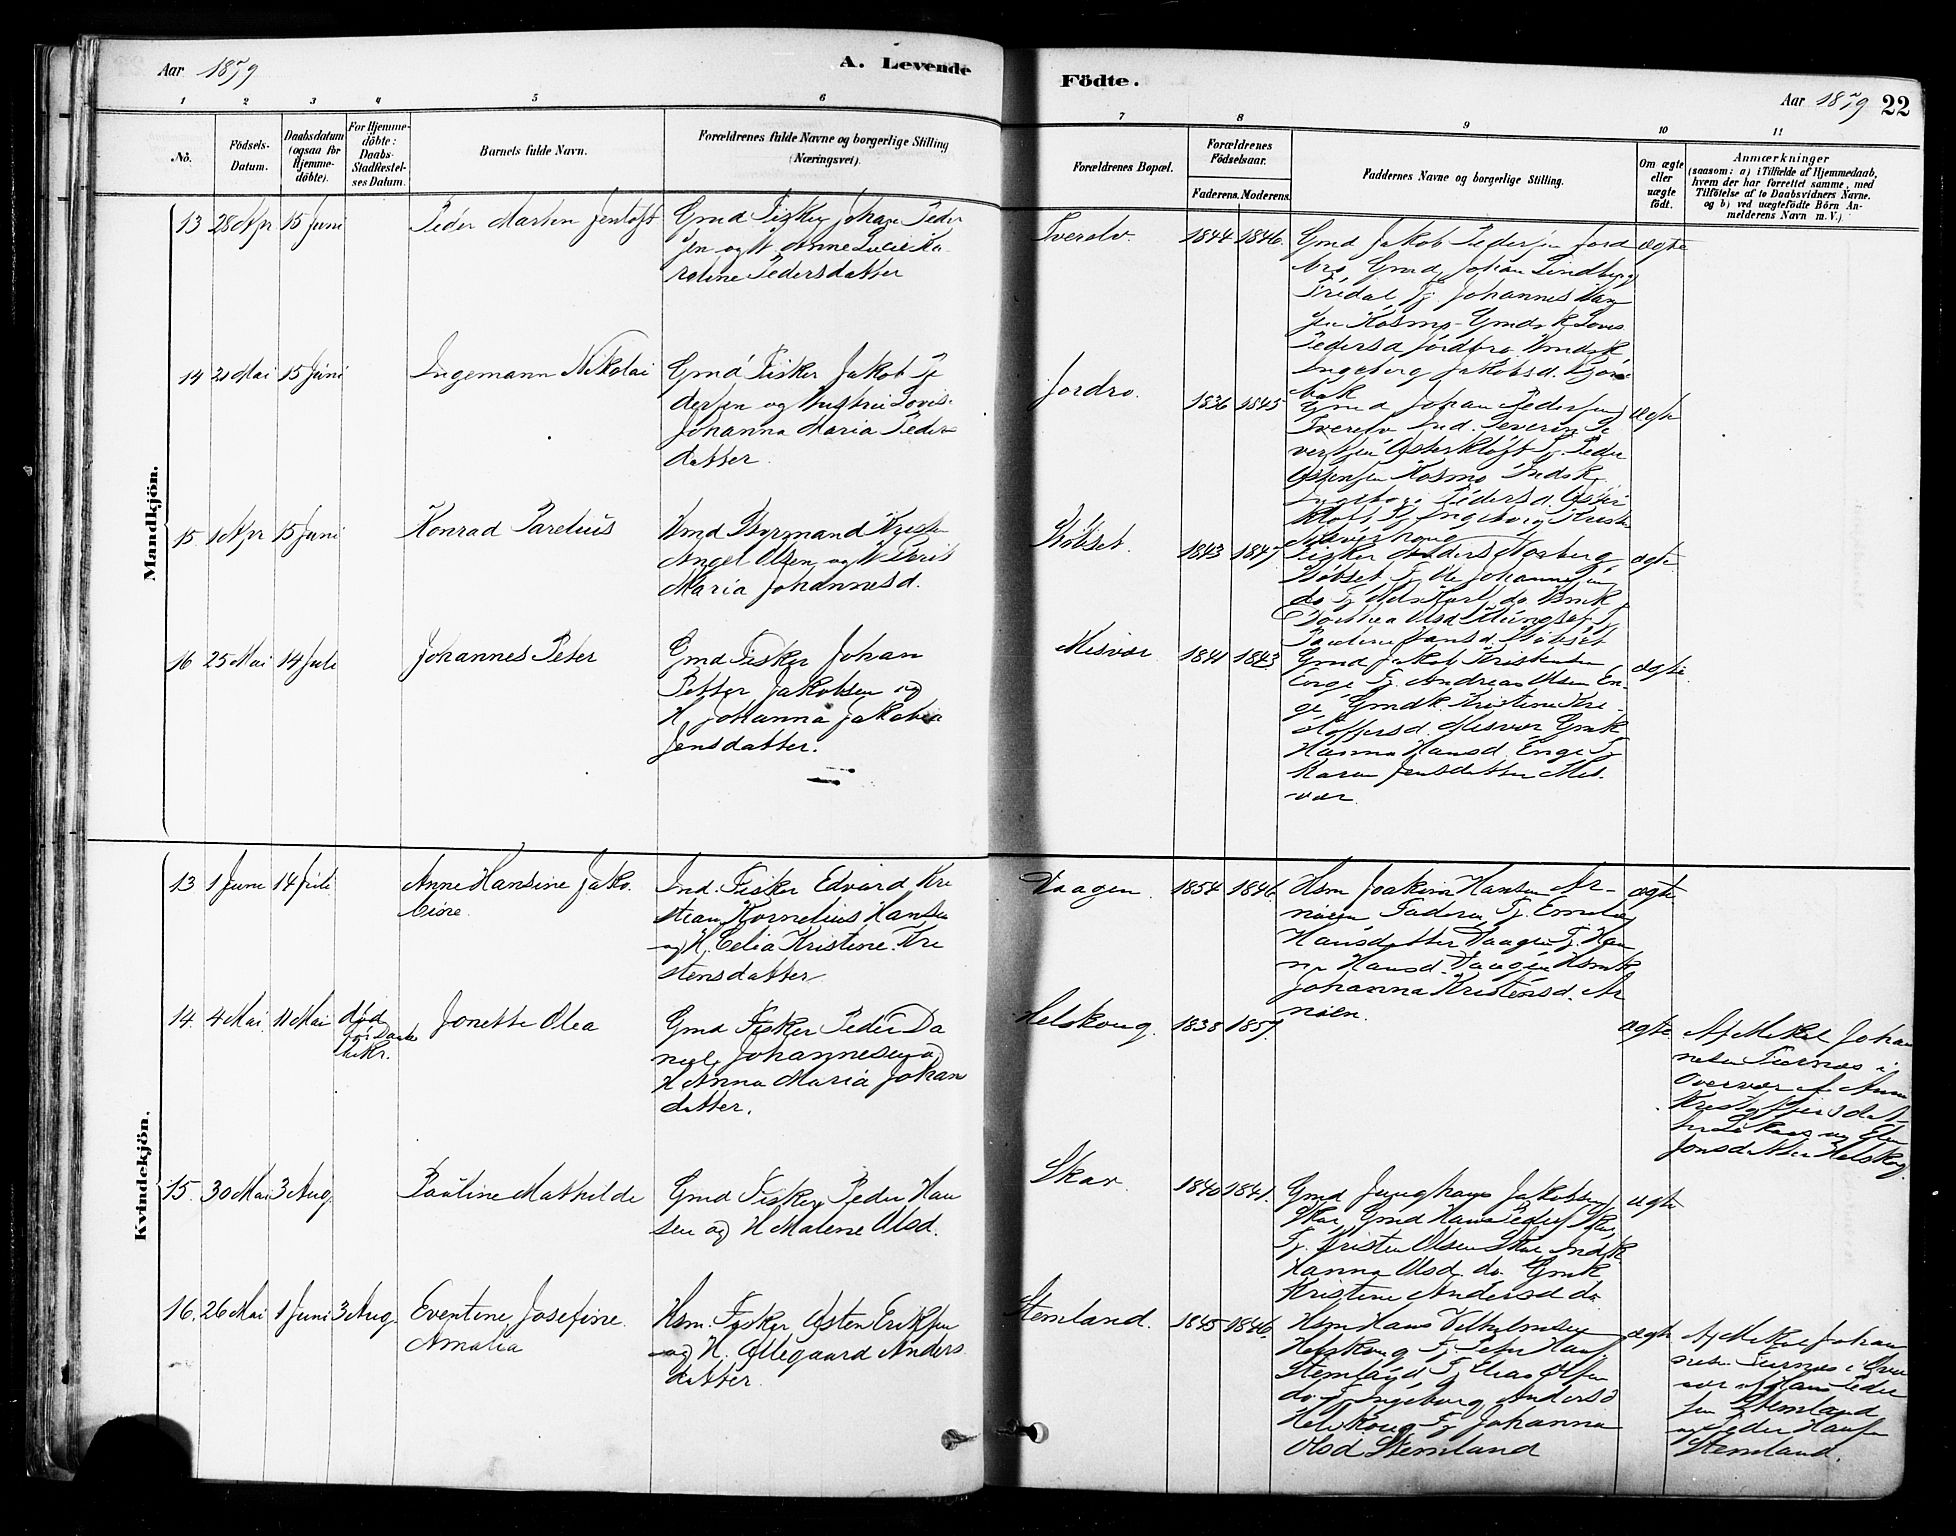 Aar 1879
A. Levende
Födte.
Aar 1879
22
1 2 3 4 5 6 7 8 9 10 11
No.
Födsels-
Datum.
Daabsdatum
(ogsaa for
Hjemme-
döbte).
For Hjemme-
döbte:
Daabs-
Stadfæstel-
ses Datum.
Barnets fulde Navn.
Forældrenes fulde Navne og borgerlige Stilling
(Næringsvei).
Forældrenes Bopæl.
Forældrenes
Födselsaar.
Faderens. Moderens.
Faddernes Navne og borgerlige Stilling.
Om ægte
eller
uægte
födt.
Anmærkninger
(saasom: a) i Tilfælde af Hjemmedaab,
hvem der har forrettet samme, med
Tilföielse af to Daabsvidners Navne,
og b) ved uægtefödte Börn An-
melderens Navn m. V.).
Mandkjön.
13 28 Apr 15 Juni
Peder Marten Jentoft
Gmd Fisker Johan Peder
sen og H Anne Lucie Ka
roline Pedersdatter
Tverelv. 1844 1846.
Gmd Jakob Pedersen Jord
bro, Gmd Johan Lindberg
Johannes
Kosmo Gmdsk Lovis
Pedersd Jordbro
Ingeborg Jakobsd.
bak
ægte
14 21 Mai 15 Juni
Ingemann Nikolai
Gmd Fisker Jakob Pe
dersen og Hustru Lovise
Johanna Maria Peders
datter
Jordro. 1836 1845
Gmd Johan Pedersen
Tverelv Ind. Severin Si
vertsen Osterkløft Tj. Peder
Kosmo Indsk
Ingeborg Pedersd. Oster
kløft Tj Ingeborg Krist
ægte
15 1 Apr 15 Juni
Konrad Parelius
Angel Olsen og H Berit
Maria Johannesd.
Støbset. 1843 1847.
Fisker Anders Norberg
Støbset Tj. Ole Johannesen
do Tj
Olsd
Hansd. Støbset
ægte
16 25 Mai 14 Juli
Johannes Peter
Gmd Fisker Johan
Petter Jakobsen og
H. Johanna Jakobea
Jensdatter.
Misvær 1841 1843
Gmd Jakob Kristensen
Enge Tj. Andreas Olsen En-
ge, Gmdk. Kristine Kri-
stoffersd. Misvær Gmk
Hanna Hansd. Enge Tj
Karen Jensdatter Mis-
vær.
ægte.
Kvindekjön.
13 1 Juni 14 Juli
Anne Hansine Jako-
bine.
Ind. Fisker Edvard Kri
stian Kornelius Hansen
og H. Celia Kristine Kri
stensdatter
Vaagen. 1854 1846.
Hsm Joakim Hansen Ar-
nøen Faderen, Tj.
Hansdatter Vaagen Tj. Han
na Hansd. Vaagen Hsmk
Johanna Kristensd. Ar
nøen.
ægte
14. 4 Mai. 11 Mai
død
før Daab
bekr.
Jonette Olea
Gmd Fisker Peder Da
niel Johannesen og
H Anna Maria Johan
datter.
Helskoug. 1838 1857.
ægte
Af Mikal Johan
nesen Furnes i
Overvær af Anna
Kristoffersdat
og Elen
Jonsdatter Helskog.
15. 30 Mai 3 Aug.
Pauline Mathilde
Gmd Fisker Peder Han
sen og H Malene Olsd.
Skar. 1840 1841.
Gmd Junghans Jakobsen
Skar, Gmd Hans Peders Skar,
Tj. Kristen Olsen Skar Indsk
Hanna Olsd. do. Gmk
Kristine Andersd do.
ægte
16. 26 Mai 1 Juni 3 Aug.
Eventine Josefine
Amalia
Hsm. Fisker Østen Eriksen
og H. Ollegaard Anders
datter.
Stemland. 1845 1846.
Hsm Hans Vilhelmsen
Helskoug Tj. Peter Hans
Stemland, Tj Elias Olsen
do Tj Ingeborg Andersd
Helskoug Tj Johanna
Olsd Stemland
ægte
Af Mikal Johan
nesen Furnes i Over
vær af Hans Peder
sen Stemland
og Peder Hansen
Stemland.